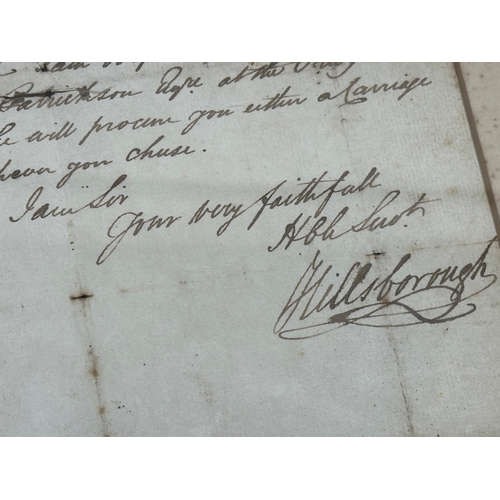 Patrickson Esqre at the
he will procure you either a Carriage
you chuse.
I am Sir
your very faithfull
Hble Servt
Hillsborough